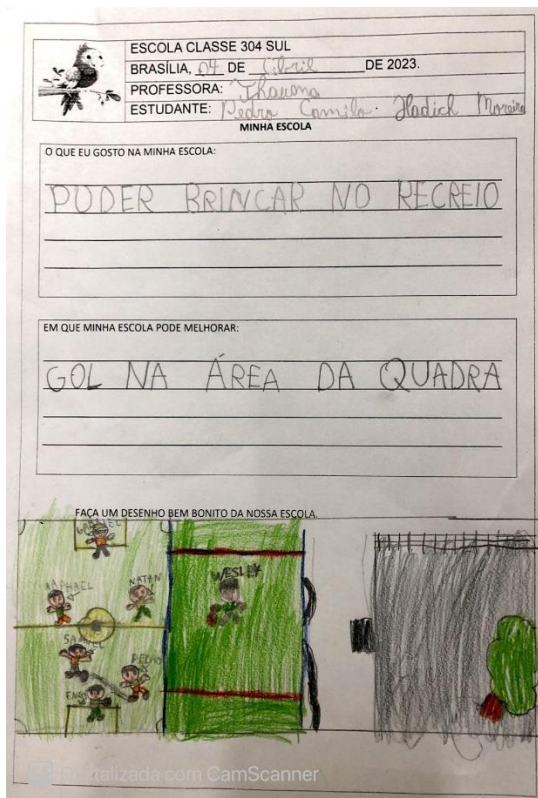 ESCOLA CLASSE 304 SUL
BRASÍLIA, 04 DE Abril DE 2023.
PROFESSORA: Thauana
ESTUDANTE: Pedro Camilo Hadich Moreira
MINHA ESCOLA
O QUE EU GOSTO NA MINHA ESCOLA:
PUDER BRINCAR NO RECREIO
EM QUE MINHA ESCOLA PODE MELHORAR:
GOL NA ÁREA DA QUADRA
FAÇA UM DESENHO BEM BONITO DA NOSSA ESCOLA.
GABRIEL
RAPHAEL
NATAN
WESLEY
PEDRO
ENZO
Digitalizada com CamScanner